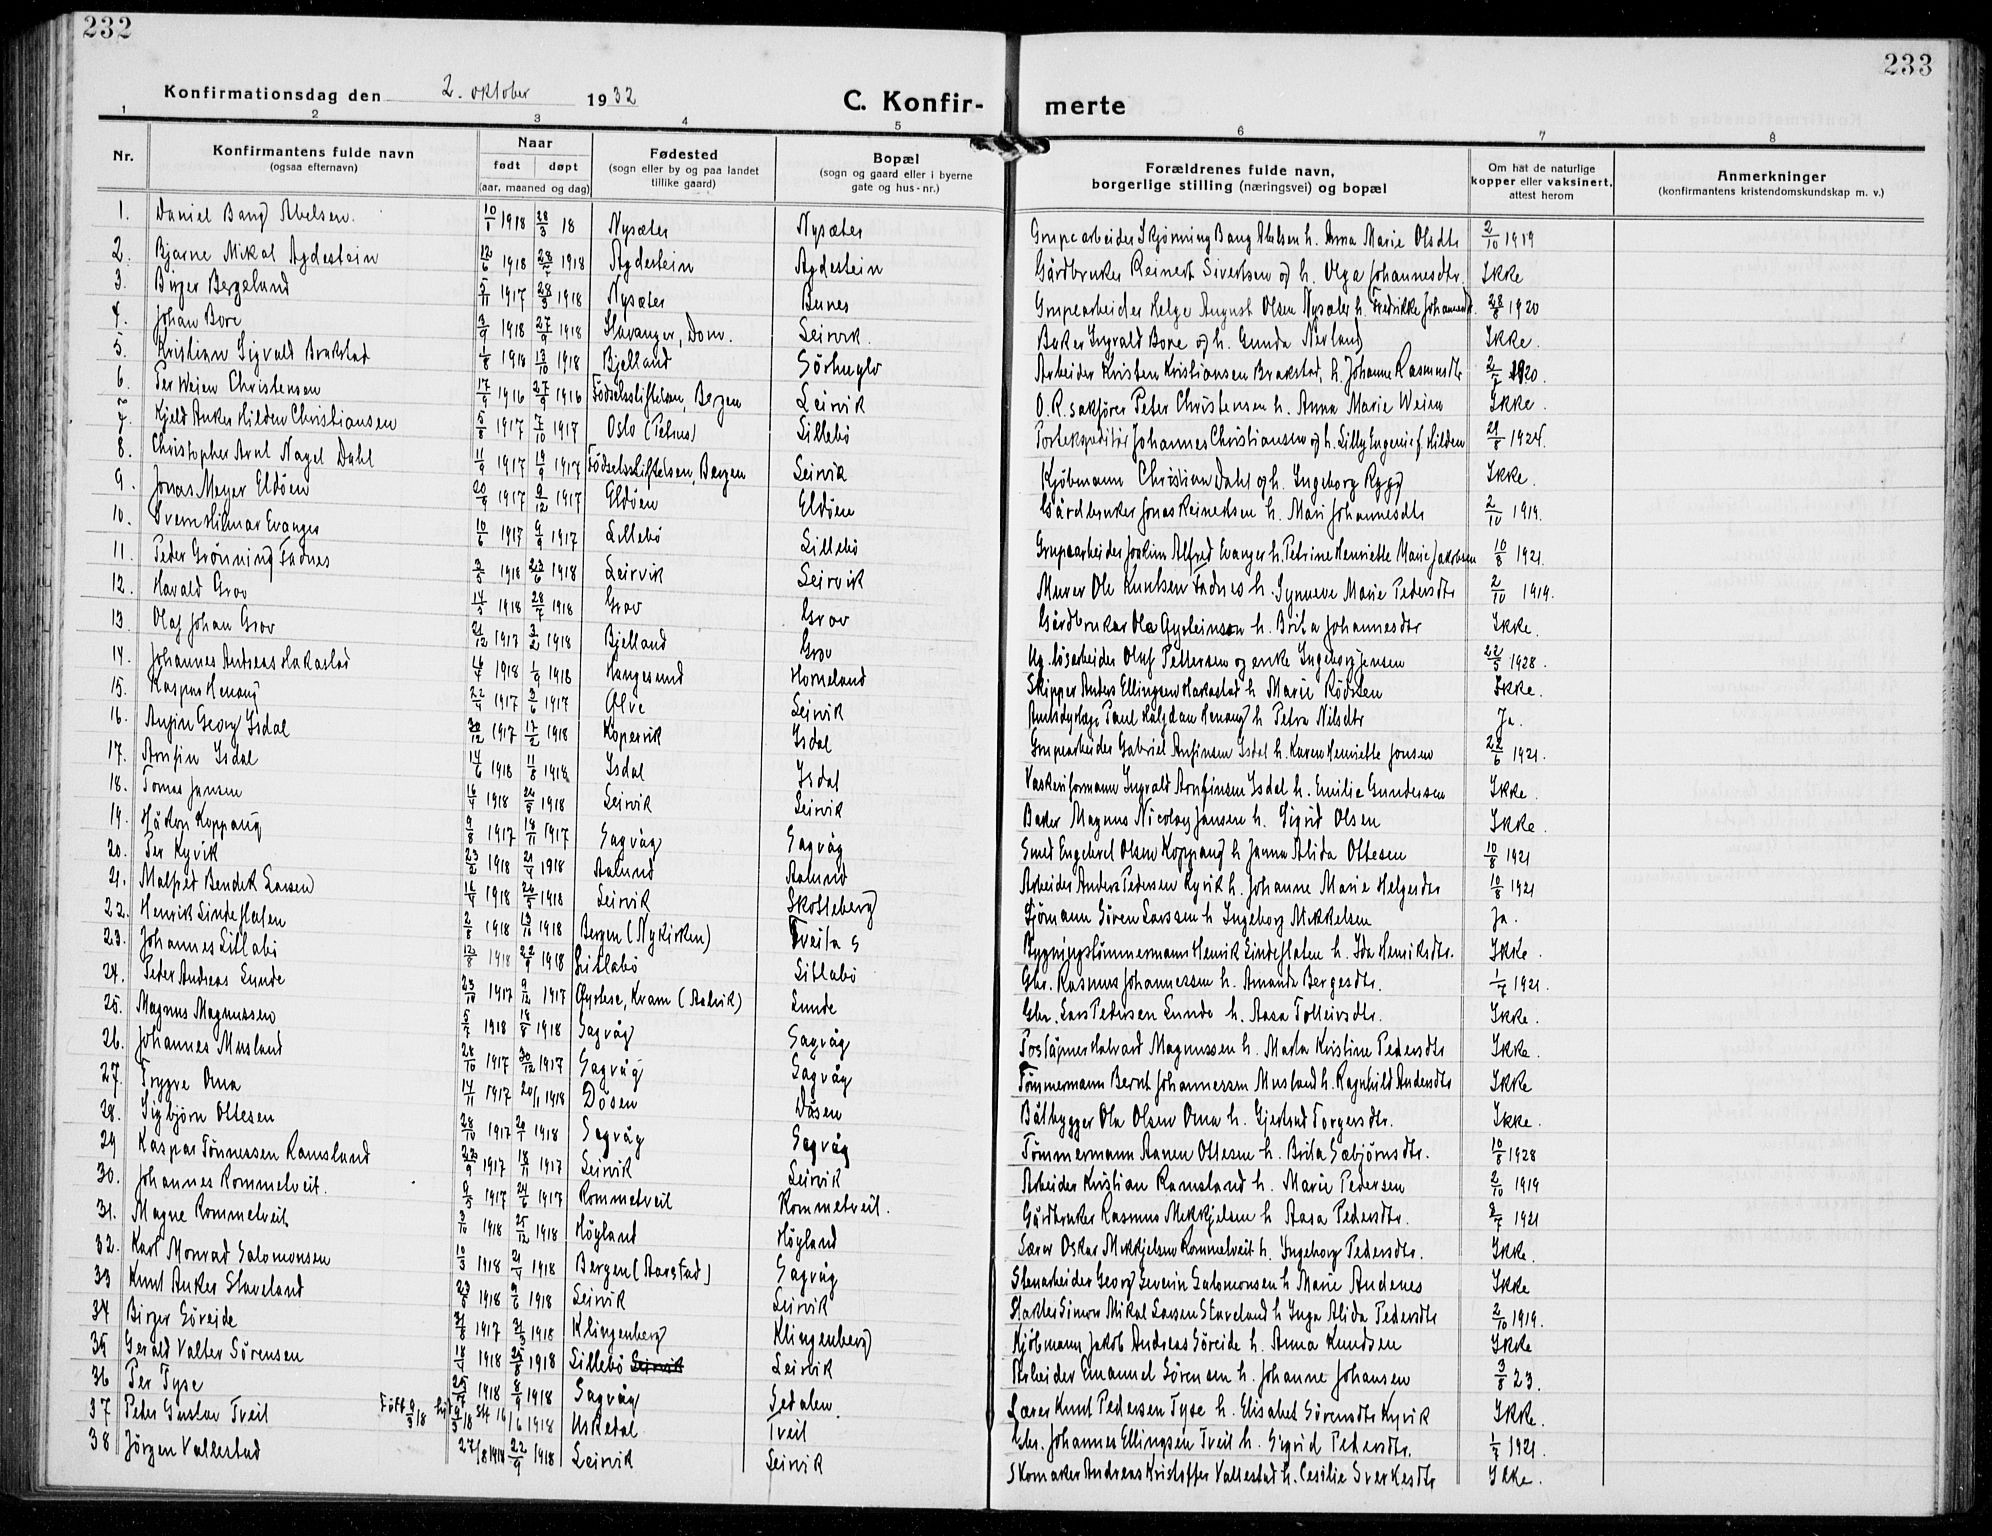 232
233
Konfirmationsdag den 2. oktober 1932
C. Konfirmerte
1 2 3 4 5 6 7 8
Nr.
Konfirmantens fulde navn
(ogsaa efternavn)
Naar
født døpt
(aar, maaned og dag)
Fødested
(sogn eller by og paa landet
tillike gaard)
Bopæl
(sogn og gaard eller i byerne
gate og hus-nr.)
Forældrenes fulde navn,
borgerlige stilling (næringsvei) og bopæl
Om hat de naturlige
kopper eller vaksinert,
attest herom
Anmerkninger
(konfirmantens kristendomskundskap m. v.)
1. Daniel Bang Abelsen. 10/1 1918 28/3 18 Nysæter Nysæter Grupearbeider Skjønning Bang Abelsen h. Anna Marie Olsdtr 2/10 1919
2. Bjarne Mikal Agdestein 12/6 1918 1918 Agdestein Agdestein Gårdbruker Reinert Sivertsen og h. Olga Johannesdtr. Ikke
3. Birger Bergeland 5/11 1917 28/3 1918 Nysæter Bunes Grupearbeider Helge August Olsen Nysæter h. Fredrikke Johannesdt. 28/8 1920
4. Johan Bore 3/9 1918 27/9 1918 Stavanger, Dom. Leirvik. Baker Ingvald Bore og h. Gunda Nerland Ikke.
5. Kristian Sigvald Brakstad 1/8 1918 13/10 1918 Bjelland Sörhuglo Arbeider Kristen Kristiansen Brakstad, h. Johanne Rasmusdtr 1920.
6. Per Weien Christensen 17/9 1916 27/9 1916 Födselsstiftelsen, Bergen Leirvik O.R.sakförer Peter Christensen h. Anna Marie Weien Ikke.
7. Kjeld Anker Hilden Christiansen 5/8 1917 7/10 1917 Oslo (Petrus) Lillebö Portekspeditör Johannes Christiansen og h. Lilly Eugenie f. Hilden 29/8 1924.
8. Christopher Arnt Nagel Dahl 11/9 1917 19/9 1917 Födselsstiftelsen, Bergen Leirvik Kjöbmann Christian Dahl og h. Ingeborg Rygg Ikke.
9. Jonas Meyer Eldöen 20/9 1917 9/12 1917 Eldöen Eldöen Gårdbruker Jonas Reinertsen h. Mari Johannesdtr 2/10 1919.
10. Sverre Hilmar Evanger 10/6 1917 9/9 1917 Lillebö Lillebö Grupearbeider Joakim Alfred Evanger h. Petrine Henriette Marie Jakobsen 10/8 1921.
11. Peder Grönning Fadnes 3/5 1918 23/6 1918 Leirvik Leirvik Murer Ole Knutsen Fadnes h. Synneve Marie Pedersdtr 2/10 1919.
12. Harald Grov 14/5 1918 28/7 1918 Grov Grov Gårdbruker Ola Gysteinsen h. Brita Johannesdtr Ikke.
13. Olaf Johan Grov 21/12 1917 3/2 1918 Bjelland Grov Olaf Pettersen og enke Ingeborg Jensen 22/5 1928.
14. Johannes Andreas Hakastad 16/4 1918 1/9 1918 Haugesund Horneland Skipper Anders Ellingsen Hakastad h. Marie Ikke.
15. Kaspar Henang 22/4 1917 3/6 1917 Ølve Leirvik Paul Halfdan Henang h. Petra Nilsdtr Ja.
16. Anfin Georg Isdal 30/12 1917 17/2 1918 Kopervik Isdal Grupearbeider Gabriel Anfinsen Isdal h. Karen Henriette Jonsen 28/6 1921.
17. Arnfin Isdal 14/6 1918 11/8 1918 Isdal Isdal Vaskeriformann Ingvald Arnfinsen Isdal h. Emilie Gundersen Ikke.
18. Tomas Jansen 16/4 1918 26/5 1918 Leirvik Leirvik Baker Magnus Nicolay Jansen h. Sigrid Olsen Ikke.
19. Håkon Koppang 9/8 1917 18/11 1917 Sagvåg Sagvåg Smed Engebret Olsen Koppang h. Janna Alida Ottesen 10/8 1921
20. Per Kyvik 23/2 1918 21/4 1918 Aalund Aalund Arbeider Anders Pedersen Kyvik h. Johanne Marie Helgesdtr 10/8 1921
21. Malfred Bendik Larsen 16/4 1918 26/5 1918 Leirvik Skotteberg Sjömann Sören Larssen h. Ingeborg Mikkelsen Ja.
22. Henrik Lindeflaten 2/8 1918 13/10 1918 Bergen (Nykirken) Tveita Bygningstömmermann Henrik Lindeflaten h. Ida Henriksdtr. Ikke.
23. Johannes Litlabö 13/8 1918 22/9 1918 Litlabö Litlabö Gbr. Rasmus Johannessen h. Amanda Bergesdtr. 1/7 1921.
24. Peder Andreas Lunde 23/10 1917 9/12 1917 Øystese, Kvam (Aalvik) Lunde Gbr. Lars Pedersen Lunde h. Aasa Tolleivsdtr. Ikke.
25. Magnus Magnussen 5/7 1918 18/8 1918 Sagvåg Sagvåg Poståpner Halvard Magnussen h. Marta Kristine Pedersdtr Ikke.
26. Johannes Musland 28/10 1917 30/12 1917 Sagvåg Sagvåg Tömmermann Bernt Johannessen Musland h. Ragnhild Andersdtr Ikke
27. Trygve Oma 14/11 1917 20/1 1918 Dösen Dösen Båtbygger Ola Olsen Oma h. Gjertrud Torgersdtr. Ikke.
28. Sigbjörn Ottesen 28/10 1917 20/1 1918 Sagvåg Sagvåg Tömmermann Aanen Ottesen h. Brita Sæbjörnsdtr. 10/8 1928
29 Kaspar Tönnessen Ramsland 23/9 1917 18/11 1917 Leirvik Leirvik Arbeider Kristian Ramsland h. Marie Pedersen 2/10 1919
30. Johannes Rommetveit. 9/5 1917 24/6 1917 Rommetveit Rommetveit. Gårdbruker Rasmus Mikkjelsen h. Aasa Pedersdtr. 2/7 1921
31. Magne Rommetveit 3/10 1918 25/12 1918 Höyland Höyland Lærer Oskar Mikkjelsen Rommetveit h. Ingeborg Pedersdtr. Ikke.
32. Karl Monrad Salomonsen 10/3 1918 21/4 1918 Bergen (Aarstad) Sagvåg Stenarbeider Georg Severin Salomonsen h. Marie Andenes Ikke
33 Knut Anker Staveland 23/5 1918 9/6 1918 Leirvik Leirvik Slakter Simon Mikal Larsen Staveland h. Inga Alida Pedersdtr 2/10 1919.
34 Birger Söreide 31/8 1917 31/3 1918 Klingenberg Klingenberg Kjöbmann Jakob Andreas Söreide h. Anna Knudsen Ikke
35 Gerald Valter Sörensen 18/4 1918 25/8 1918 Lillebö Leirvik Leirvik Arbeider Emanuel Sörensen h. Johanne Johansen 3/8 23.
36 Per Tyse 25/7 1918 8/9 1918 Sagvåg Sedalen Lærer Knut Pedersen Tyse h. Elisabet Sörensdtr Kyvik Ikke.
37 Peder Gustav Tveit Födt 9/3 18 9/3 18 16/6 1918 Uskedal Tveit Gbr. Johannes Ellingsen Tveit h. Sigrid Pedersdtr. 1/7 1921.
38 Jörgen Vallestad 27/8 1918 22/9 1918 Leirvik Leirvik Skomaker Andreas Kristoffer Vallestad h. Cesilie Sverkesdtr Ikke.